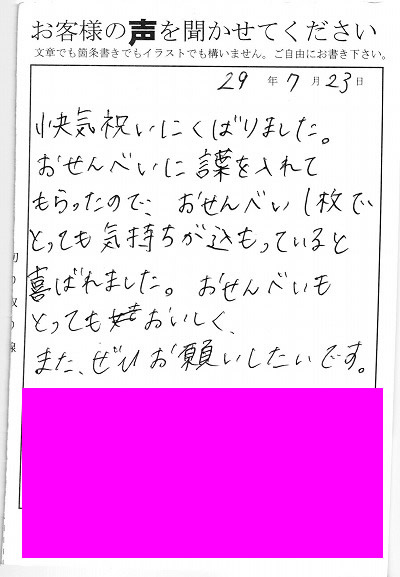 お客様の声を聞かせてください
文章でも箇条書きでもイラストでも構いません。ご自由にお書き下さい。
29年7月23日
快気祝いにくばりました。
おせんべいに言葉を入れて
もらったので、おせんべい1枚で
とっても気持ちが込もっていると
喜ばれました。おせんべいも
とっても おいしく、
また、ぜひお願いしたいです。
切り取り線